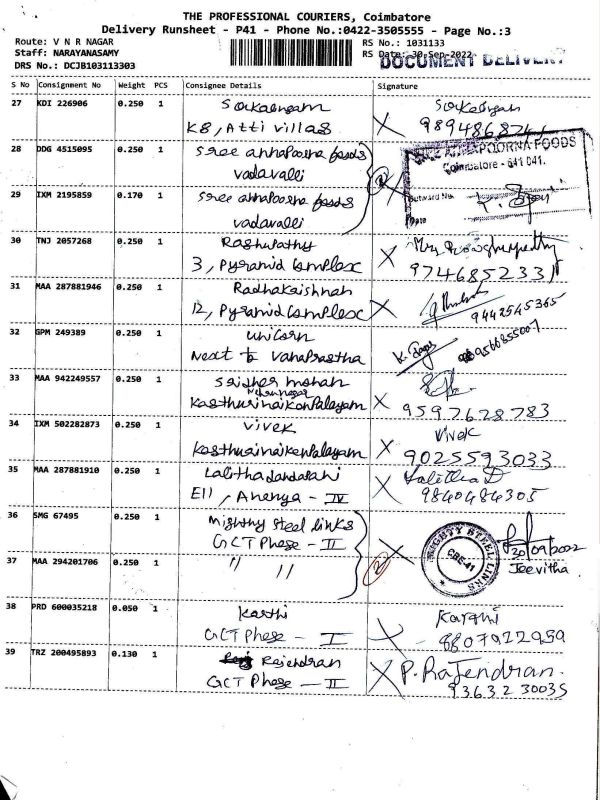 THE PROFESSIONAL COURIERS, Coimbatore
Delivery Runsheet - P41 - Phone No.:0422-3505555 - Page No.:3
Route: V N R NAGAR
RS No.: 1031133
Staff: NARAYANASAMY
RS Date: 30-Sep-2022
DRS No.: DCJB103113303
DOCUMENT DELIVERY
S No Consignment No Weight PCS Consignee Details Signature
27 KDI 226906 0.250 1
K8, Atti villas
28 DDG 4515095 0.250 1 Sree annapoorna foods
vadavalli
POORNA FOODS
Coimbatore - 641 041.
29 IXM 2195859 0.170 1 Sree annapoorna foods
vadavalli
Outward No.
Date
30 TNJ 2057268 0.250 1 Raghupathy
3, Pyramid Complex
9746852331
31 MAA 287881946 0.250 1 Radhakrishnan
12, Pyramid Complex
9442545365
32 GPM 249389 0.250 1 unicorn
Next to Vanaprastha
9566855007
33 MAA 942249557 0.250 1 Sridher mohan
Nehru nagar
KasthuriNaikenPalayam
9597628783
34 IXM 502282873 0.250 1 vivek
Vivek
KasthuriNaikenPalayam
9025593033
35 MAA 287881910 0.250 1 Lalithadandapani
Lalitha D
E11, Ananya - IV
9840484305
36 SMG 67495 0.250 1 Mighty Steel links
GCT Phase - II
MIGHTY STEEL LINKS
CBE-41
30/09/2022
37 MAA 294201706 0.250 1 " "
2
Jeevitha
38 PRD 600035218 0.050 1 Karthi
Karthi
GCT Phase - I
9807922959
39 TRZ 200495893 0.130 1 Rajendran
P. Rajendran.
GCT Phase - II
93632 30035